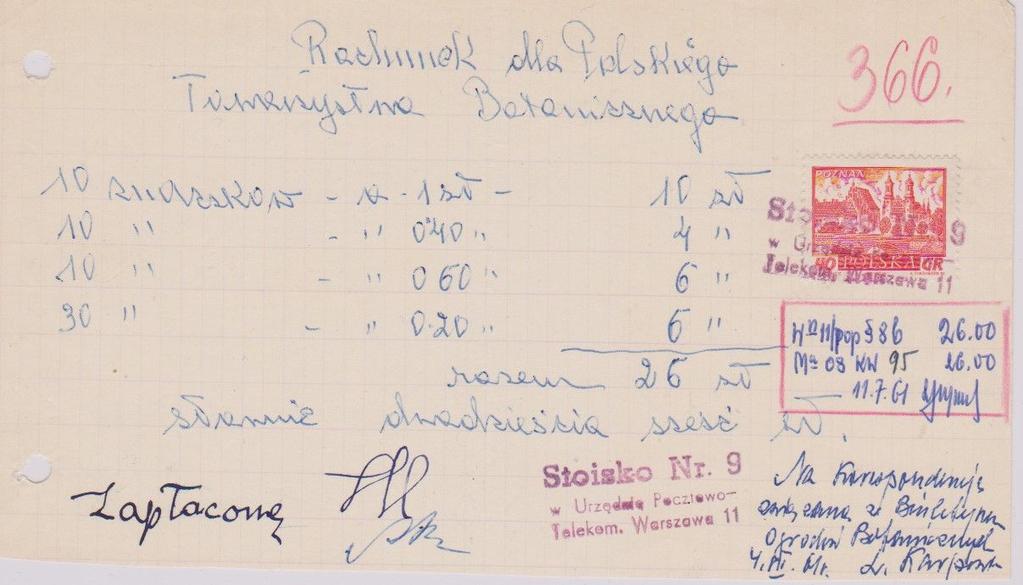 Rachunek dla Polskiego
Towarzystwa Botanicznego
366.
10 znaczków - a - 1 zł - 10 zł
10 " - " 0.40 " 4 "
10 " - " 0.60 " 6 "
30 " - " 0.20 " 6 "
razem 26 zł
słownie dwadzieścia sześć zł.
POZNAŃ
40 POLSKA GR
Stoisko Nr. 9
w Urzędzie
Telekom. Warszawa 11
Wn 11/pop § 86 26.00
Ma 03 KW 95 26.00
11.7.61
Zapłacone
Stoisko Nr. 9
w Urzędzie Pocztowo-
Telekom. Warszawa 11
Na korespondencję
związaną z Biuletynem
Ogrodów Botanicznych
L. Karpow